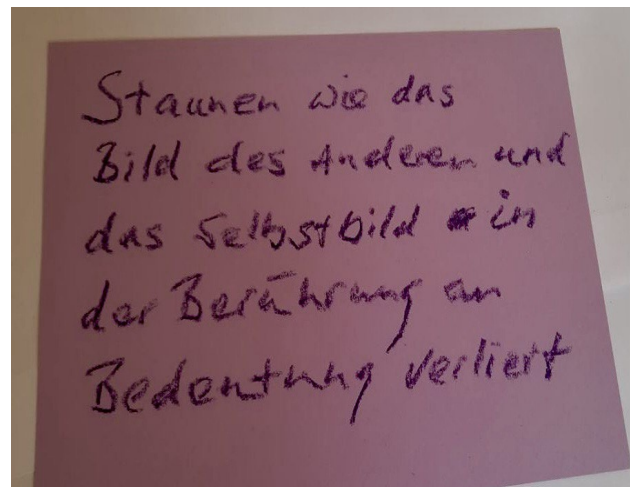 Staunen wie das
Bild des Anderen und
das Selbstbild in
der Berührung an
Bedeutung verliert